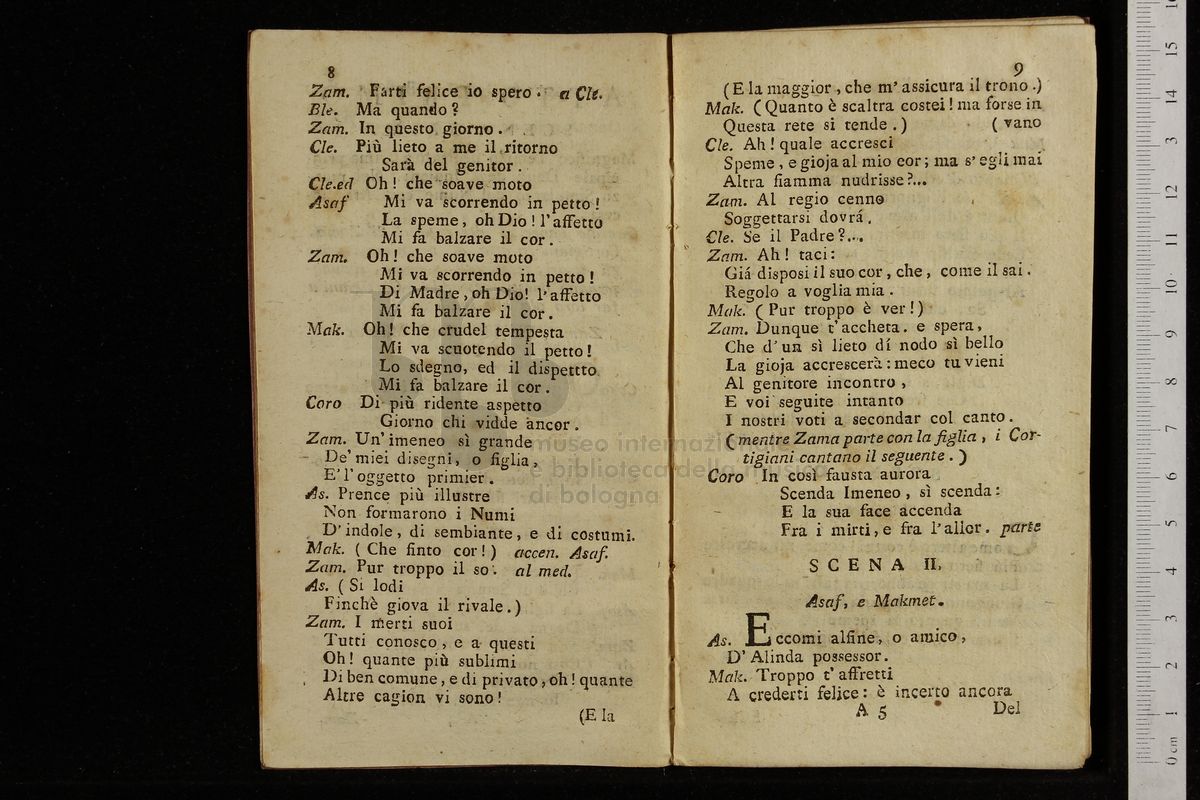 8
Zam. Farti felice io spero. a Cle.
Ble. Ma quando?
Zam. In questo giorno.
Cle. Più lieto a me il ritorno
Sarà del genitor.
Cle.ed Oh! che soave moto
Asaf Mi va scorrendo in petto!
La speme, oh Dio! l'affetto
Mi fa balzare il cor.
Zam. Oh! che soave moto
Mi va scorrendo in petto!
Di Madre, oh Dio! l'affetto
Mi fa balzare il cor.
Mak. Oh! che crudel tempesta
Mi va scuotendo il petto!
Lo sdegno, ed il dispettto
Mi fa balzare il cor.
Coro Di più ridente aspetto
Giorno chi vidde ancor.
Zam. Un' imeneo sì grande
De' miei disegni, o figlia,
E' l'oggetto primier.
As. Prence più illustre
Non formarono i Numi
D' indole, di sembiante, e di costumi.
Mak. (Che finto cor!) accen. Asaf.
Zam. Pur troppo il so. al med.
As. (Si lodi
Finchè giova il rivale.)
Zam. I merti suoi
Tutti conosco, e a questi
Oh! quante più sublimi
Di ben comune, e di privato, oh! quante
Altre cagion vi sono!
(E la
9
(E la maggior, che m' assicura il trono.)
Mak. (Quanto è scaltra costei! ma forse in
Questa rete si tende.) (vano
Cle. Ah! quale accresci
Speme, e gioja al mio cor; ma s' egli mai
Altra fiamma nudrisse?...
Zam. Al regio cenno
Soggettarsi dovrá.
Cle. Se il Padre?...
Zam. Ah! taci:
Giá disposi il suo cor, che, come il sai.
Regolo a voglia mia.
Mak. (Pur troppo è ver!)
Zam. Dunque t' accheta. e spera,
Che d' un sì lieto dí nodo sì bello
La gioja accrescerà: meco tu vieni
Al genitore incontro,
E voi seguite intanto
I nostri voti a secondar col canto.
(mentre Zama parte con la figlia, i Cor-
tigiani cantano il seguente.)
Coro In così fausta aurora
Scenda Imeneo, sì scenda:
E la sua face accenda
Fra i mirti, e fra l'allor. parte
SCENA II,
Asaf, e Makmet.
As. Eccomi alfine, o amico,
D' Alinda possessor.
Mak. Troppo t' affretti
A crederti felice: è incerto ancora
A 5 Del
museo internazi
e biblioteca della musica
di bologna
0 cm 1 2 3 4 5 6 7 8 9 10 11 12 13 14 15